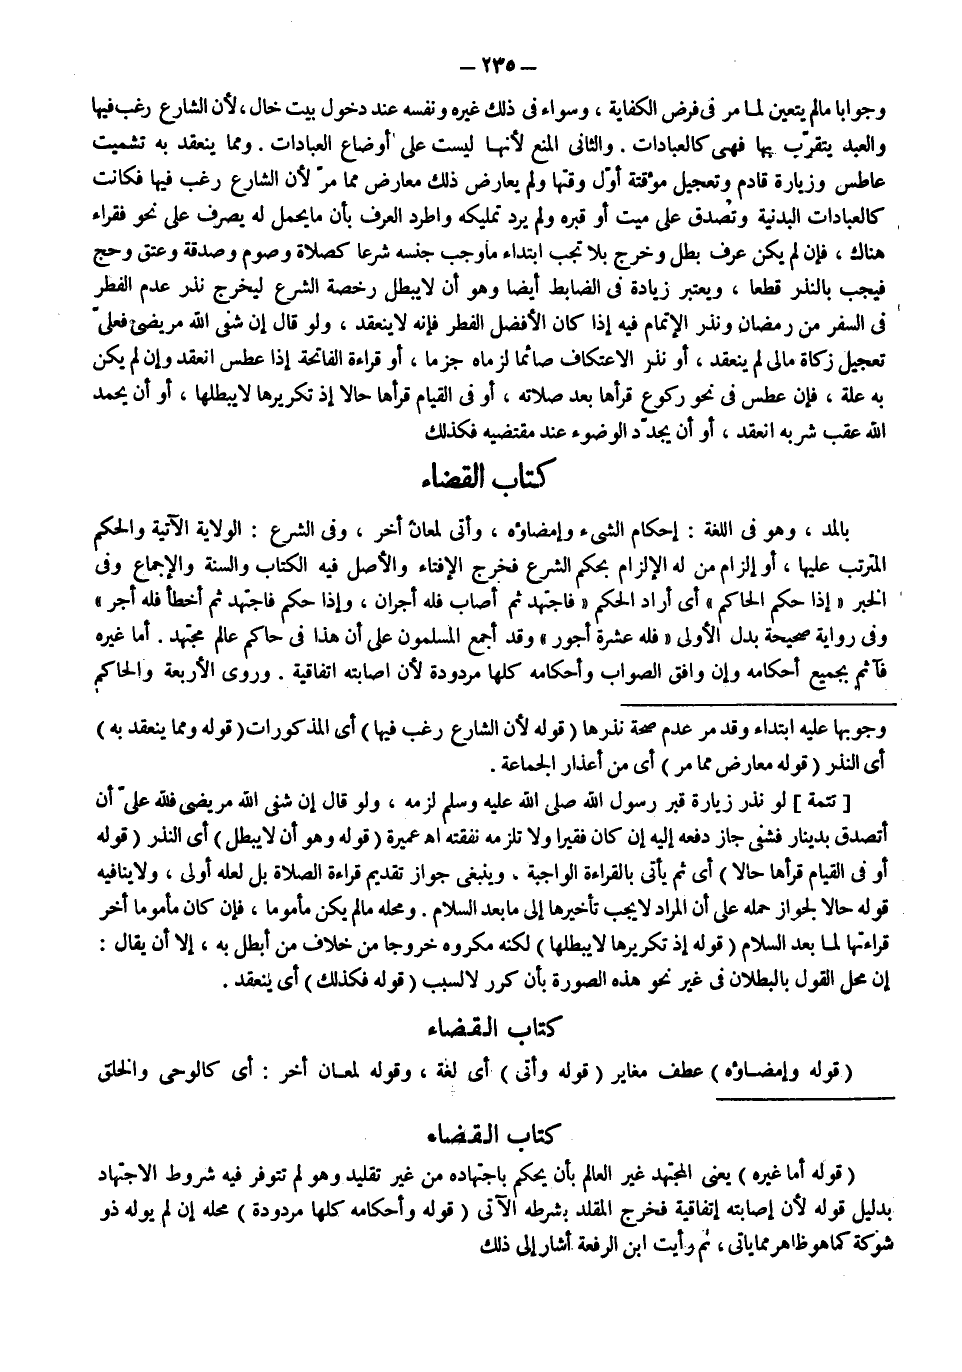 – ٢٣٥ –
وجوابا مالم يتعين لما مر فى فرض الكفاية ، وسواء فى ذلك غيره ونفسه عند دخول بيت خال ، لأن الشارع رغب فيها
والعبد يتقرّب بها فهى كالعبادات . والثانى المنع لأنها ليست على أوضاع العبادات . ومما ينعقد به تشميت
عاطس وزيارة قادم وتعجيل مؤقتة أوّل وقتها ولم يعارض ذلك معارض مما مرّ لأن الشارع رغب فيها فكانت
كالعبادات البدنية وتصدق على ميت أو قبره ولم يرد تمليكه واطرد العرف بأن مايحمل له يصرف على نحو فقراء
هناك ، فإن لم يكن عرف بطل وخرج بلا تجب ابتداء ماوجب جنسه شرعا كصلاة وصوم وصدقة وعتق وحج
فيجب بالنذر قطعا ، ويعتبر زيادة فى الضابط أيضا وهو أن لايبطل رخصة الشرع ليخرج نذر عدم الفطر
فى السفر من رمضان ونذر الإتمام فيه إذا كان الأفضل الفطر فإنه لاينعقد ، ولو قال إن شفى الله مريضى فعلىّ
تعجيل زكاة مالى لم ينعقد ، أو نذر الاعتكاف صائما لزماه جزما ، أو قراءة الفاتحة إذا عطس انعقد وإن لم يكن
به علة ، فإن عطس فى نحو ركوع قرأها بعد صلاته ، أو فى القيام قرأها حالا إذ تكريرها لايبطلها ، أو أن يحمد
الله عقب شربه انعقد ، أو أن يجدّد الوضوء عند مقتضيه فكذلك
كتاب القضاء
بالمد ، وهو فى اللغة : إحكام الشىء وإمضاؤه ، وأتى لمعان أخر ، وفى الشرع : الولاية الآتية والحكم
المترتب عليها ، أو إلزام من له الإلزام بحكم الشرع فخرج الإفتاء والأصل فيه الكتاب والسنة والإجماع وفى
الخبر « إذا حكم الحاكم » أى أراد الحكم « فاجتهد ثم أصاب فله أجران ، وإذا حكم فاجتهد ثم أخطأ فله أجر »
وفى رواية صحيحة بدل الأولى « فله عشرة أجور » وقد أجمع المسلمون على أن هذا فى حاكم عالم مجتهد . أما غيره
فآثم بجميع أحكامه وإن وافق الصواب وأحكامه كلها مردودة لأن اصابته اتفاقية . وروى الأربعة والحاكم
وجوبها عليه ابتداء وقد مر عدم صحة نذرها ( قوله لأن الشارع رغب فيها ) أى المذكورات ( قوله ومما ينعقد به )
أى النذر ( قوله معارض مما مر ) أى من أعذار الجماعة .
[ تتمة ] لو نذر زيارة قبر رسول الله صلى الله عليه وسلم لزمه ، ولو قال إن شفى الله مريضى فلله علىّ أن
أتصدق بدينار فشفى جاز دفعه إليه إن كان فقيرا ولا تلزمه نفقته اهـ عميرة ( قوله وهو أن لايبطل ) أى النذر ( قوله
أو فى القيام قرأها حالا ) أى ثم يأتى بالقراءة الواجبة . وينبغى جواز تقديم قراءة الصلاة بل لعله أولى ، ولاينافيه
قوله حالا لجواز حمله على أن المراد لايجب تأخيرها إلى مابعد السلام . ومحله مالم يكن مأموما ، فإن كان مأموما أخر
قراءتها لما بعد السلام ( قوله إذ تكريرها لايبطلها ) لكنه مكروه خروجا من خلاف من أبطل به ، إلا أن يقال :
إن محل القول بالبطلان فى غير نحو هذه الصورة بأن كرر لالسبب ( قوله فكذلك ) أى ينعقد .
كتاب القضاء
( قوله وإمضاؤه ) عطف مغاير ( قوله وأتى ) أى لغة ، وقوله لمعان أخر : أى كالوحى والخلق
كتاب القضاء
( قوله أما غيره ) يعنى المجتهد غير العالم بأن يحكم باجتهاده من غير تقليد وهو لم تتوفر فيه شروط الاجتهاد
بدليل قوله لأن إصابته إتفاقية فخرج المقلد بشرطه الآتى ( قوله وأحكامه كلها مردودة ) محله إن لم يوله ذو
شوكة كماهو ظاهر مماياتى ، ثم رأيت ابن الرفعة أشار إلى ذلك